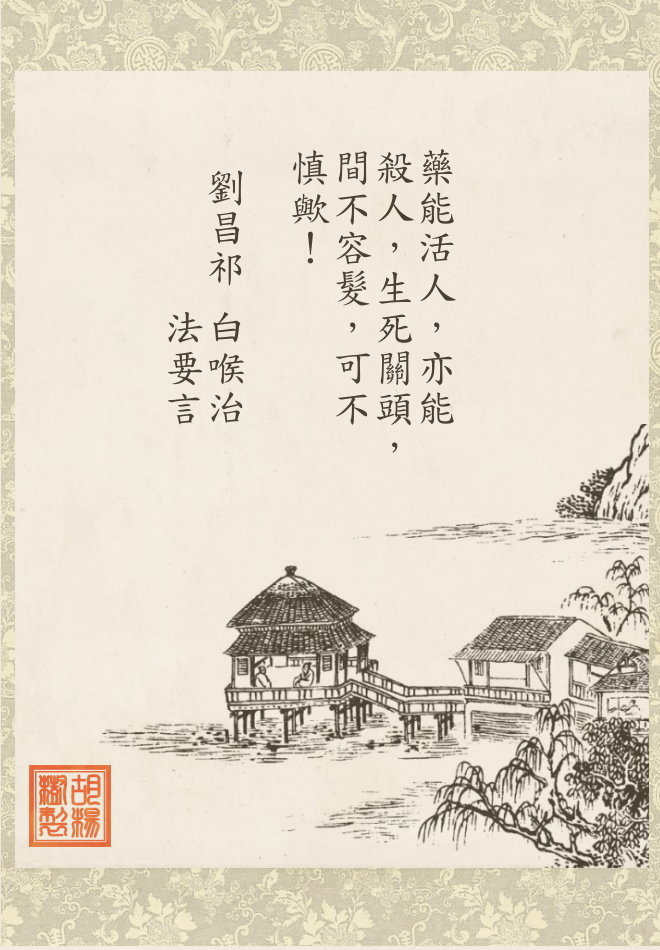 藥能活人，亦能
殺人，生死關頭，
間不容髮，可不
慎歟！
劉昌祁 白喉治
法要言
胡楊
樹製